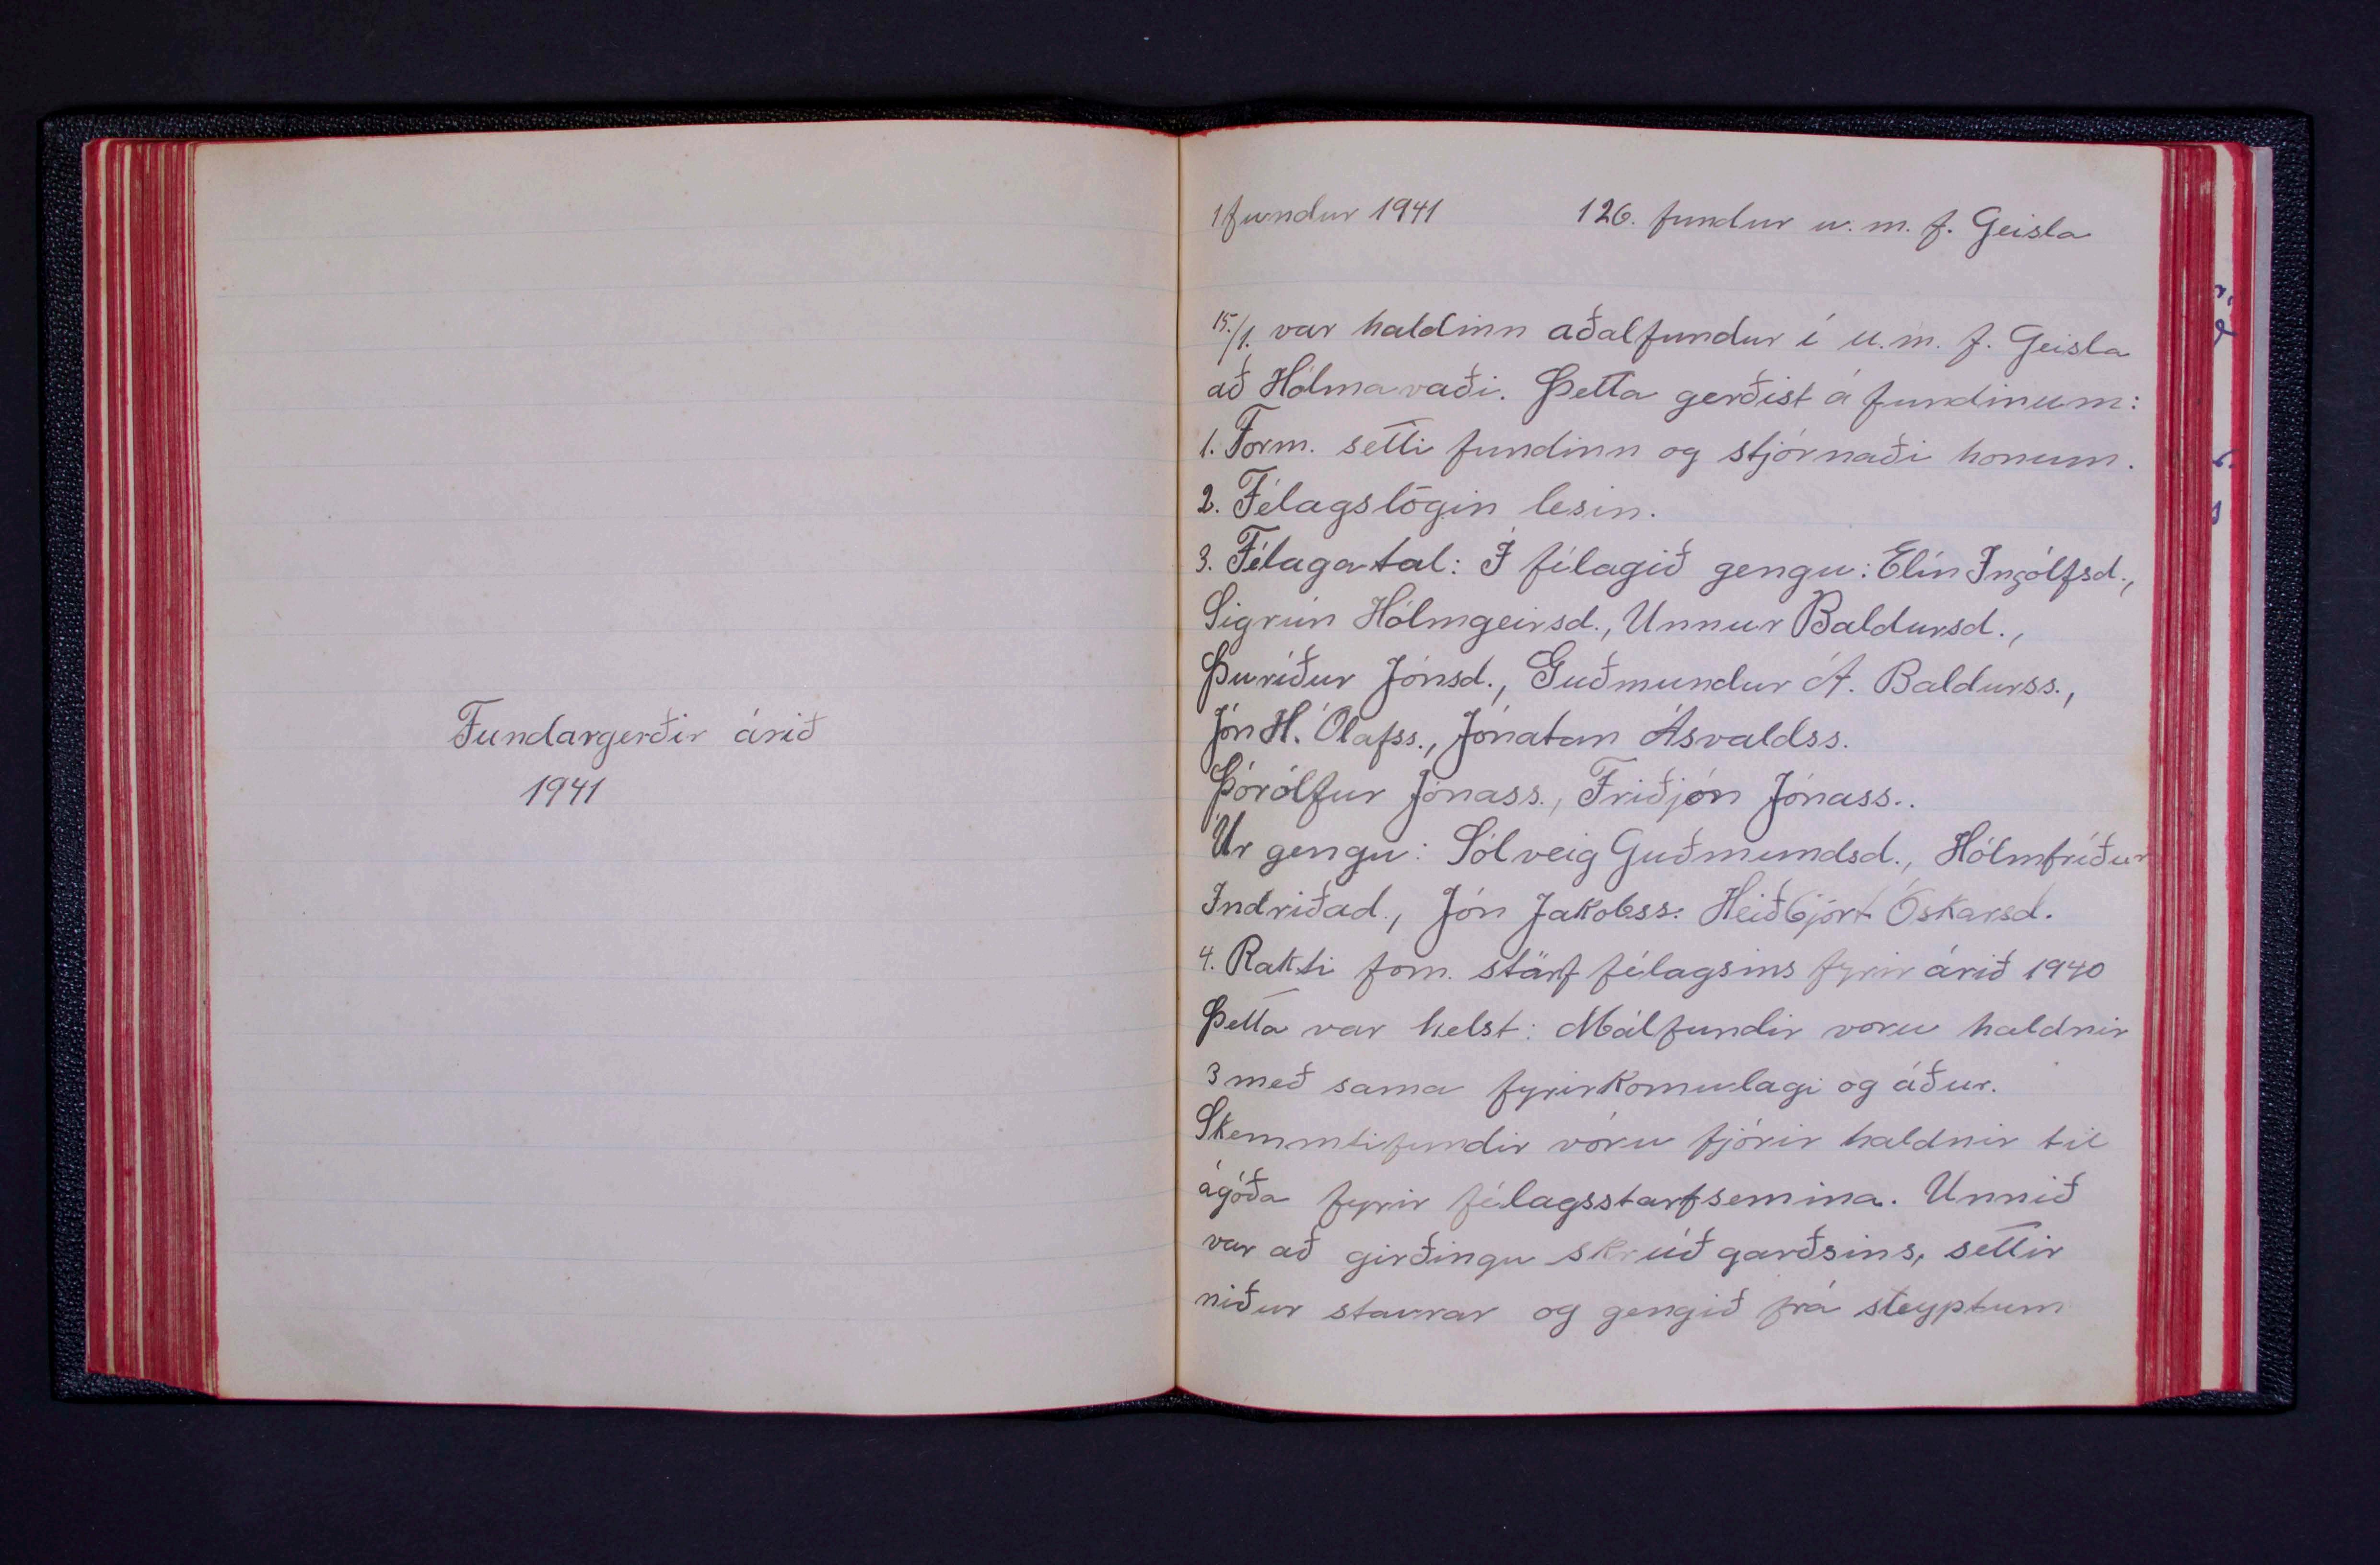 Fundargerðir árið
1941
1 fundur 1941 126. fundur u. m. f. Geisla
15./1. var haldinn aðalfundur í u. m. f. Geisla
að Hólmavaði. Þetta gerðist á fundinum:
1. Form. setti fundinn og stjórnaði honum.
2. Félagslögin lesin.
3. Félagatal: Í félagið gengu: Elín Ingólfsd.,
Sigrún Hólmgeirsd., Unnur Baldursd.,
Þuríður Jónsd., Guðmundur Á. Baldurss.,
Jón H. Ólafss., Jónatan Ásvaldss.
Þórólfur Jónass., Friðjón Jónass..
Úr gengu: Sólveig Guðmundsd., Hólmfríður
Indriðad., Jón Jakobss. Heiðbjört Óskarsd.
4. Rakti fom. störf félagsins fyrir árið 1940
Þetta var helst: Málfundir voru haldnir
3 með sama fyrirkomulagi og áður.
Skemmtifundir vóru fjórir haldnir til
ágóða fyrir félagsstarfsemina. Unnið
var að girðingu skrúðgarðsins, settir
niður staurar og gengið frá steyptum